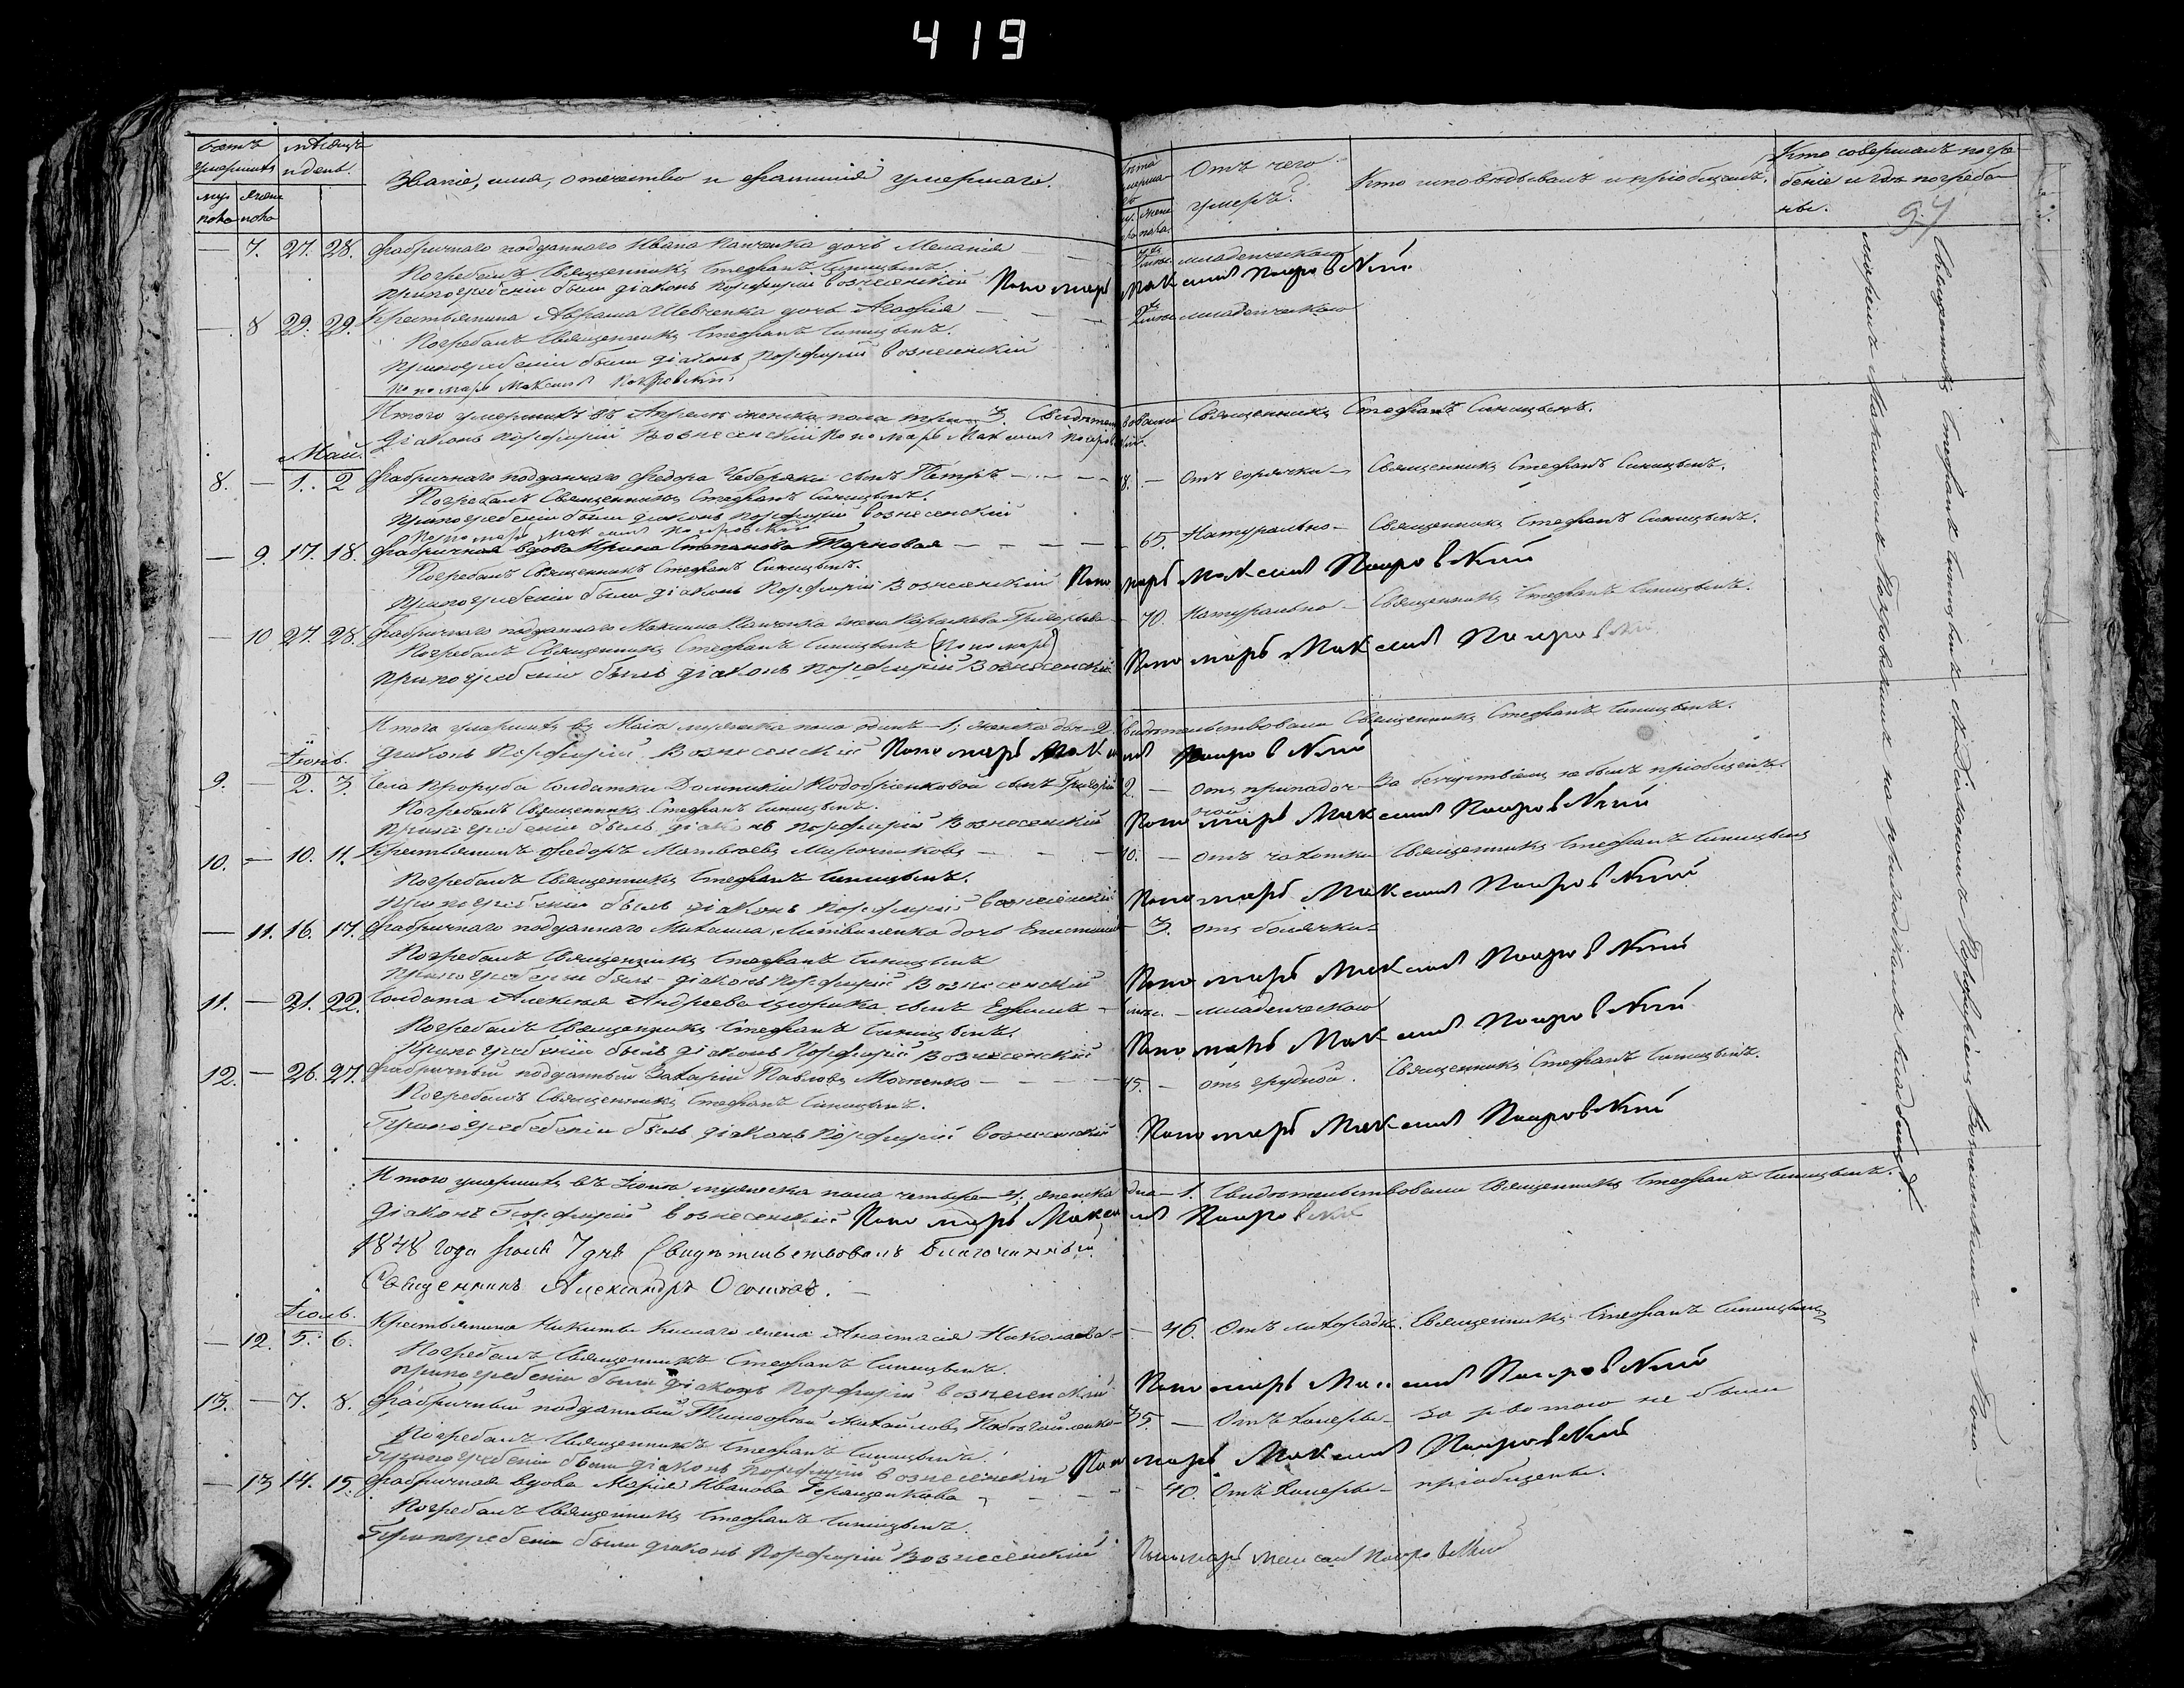 419
Счетъ умершихъ
мѣсяцъ и день.
Званіе, имя, отечество и фамилія умершаго.
Лѣта умершаго
Отъ чего умеръ?
Кто исповѣдывалъ и пріобщалъ?
Кто совершалъ погребеніе и гдѣ погребены.
муж пола жен пола
94
— 7. 27. 28. Фабричнаго подданнаго Ивана Панченка дочь Меланія — младенческою
Погребалъ Священникъ Стефанъ Синицынъ
При погребеніи были діаконъ Порфирій Вознесенскій Пономарь Максимъ Покровскій
— 8 29. 29. Крестьянина Аврама Шевченка дочь Агафія — младенческою
Погребалъ Священникъ Стефанъ Синицынъ.
При погребеніи были діаконъ Порфирій Вознесенскій
Пономарь Максимъ Покровскій
Итого умершихъ въ Апрелѣ женска пола три — 3. Свидѣтельствовали Священникъ Стефанъ Синицынъ.
Діаконъ Порфирій Вознесенскій Пономарь Максимъ Покровскій.
Май.
8. — 1. 2 Фабричнаго подданнаго Федора Чеберяки сынъ Петръ — 18. — Отъ горячки — Священникъ Стефанъ Синицынъ.
Погребалъ Священникъ Стефанъ Синицынъ.
При погребеніи были діаконъ Порфирій Вознесенскій
Пономарь Максимъ Покровскій
— 9. 17. 18. Фабричная вдова Ирина Степанова Терновая — 65. Натурально — Священникъ Стефанъ Синицынъ.
Погребалъ Священникъ Стефанъ Синицынъ.
При погребеніи были діаконъ Порфирій Вознесенскій Пономарь Максимъ Покровскій
— 10 27. 28. Фабричнаго подданнаго Максима Панченка жена Параскева Григорьева — 70. Натурально — Священникъ Стефанъ Синицынъ.
Погребалъ Священникъ Стефанъ Синицынъ (Пономарь)
При погребеніи былъ діаконъ Порфирій Вознесенскій Пономарь Максимъ Покровскій
Итого умершихъ въ Маѣ мужеска пола одинъ — 1; женска двѣ — 2 Свидѣтельствовали Священникъ Стефанъ Синицынъ.
Діаконъ Порфирій Вознесенскій Пономарь Максимъ Покровскій
Іюнь.
9. — 2. 3. Села Проруба Солдатки Домникіи Кодобріенковой сынъ Григорій 2. — Отъ припадочной. За безчувствіемъ не былъ пріобщенъ.
Погребалъ Священникъ Стефанъ Синицынъ.
При погребеніи былъ діаконъ Порфирій Вознесенскій Пономарь Максимъ Покровскій
10. — 10. 11. Крестьянинъ Федоръ Матвѣевъ Мирочниковъ — — Отъ чахотки Священникъ Стефанъ Синицынъ
Погребалъ Священникъ Стефанъ Синицынъ.
При погребеніи былъ діаконъ Порфирій Вознесенскій Пономарь Максимъ Покровскій
— 11. 16. 17. Фабричнаго подданнаго Михаила Литвиненка дочь — 3. Отъ болячки —
Погребалъ Священникъ Стефанъ Синицынъ
При погребеніи былъ діаконъ Порфирій Вознесенскій Пономарь Максимъ Покровскій
11. — 21. 22. Солдата Алексѣя Андреева сынъ Ефимъ — младенческою
Погребалъ Священникъ Стефанъ Синицынъ.
При погребеніи былъ діаконъ Порфирій Вознесенскій Пономарь Максимъ Покровскій
12. — 26. 27. Фабричный подданный Захарій Павловъ — 45. — Отъ грудной. Священникъ Стефанъ Синицынъ.
Погребалъ Священникъ Стефанъ Синицынъ.
При погребебеніи былъ діаконъ Порфирій Вознесенскій Пономарь Максимъ Покровскій
Итого умершихъ въ Іюнѣ мужеска пола четыре — 4; женска одна — 1. Свидѣтельствовали Священникъ Стефанъ Синицынъ.
Діаконъ Порфирій Вознесенскій Пономарь Максимъ Покровскій
1848 года Іюля 7 дня Свидѣтельствовалъ Благочинный
Священникъ Александръ
Іюль.
— 12. 5. 6. Крестьянина Никиты Кислаго жена Анастасія Николаева — 46. Отъ лихорадки. Священникъ Стефанъ Синицынъ
Погребалъ Священникъ Стефанъ Синицынъ.
При погребеніи были діаконъ Порфирій Вознесенскій Пономарь Максимъ Покровскій
13. — 7. 8. Фабричный подданный Тимофей Михайловъ — 35. — Отъ холеры — За рвотою не были
Погребалъ Священникъ Стефанъ Синицынъ.
При погребеніи были діаконъ Порфирій Вознесенскій Пономарь Максимъ Покровскій
— 13 14. 15. Фабричная вдова Марія Иванова Геращенкова — 40. Отъ холеры — пріобщены.
Погребалъ Священникъ Стефанъ Синицынъ.
При погребеніи были діаконъ Порфирій Вознесенскій Пономарь Максимъ Покровскій
Священникъ Стефанъ Синицынъ съ діакономъ Порфиріемъ Вознесенскимъ и Поно-
маремъ Максимомъ Покровскимъ на приходскомъ кладбищѣ.